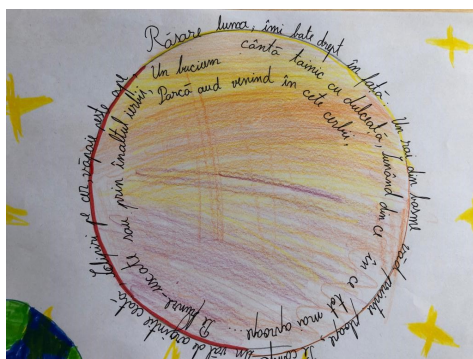 Răsare luna, îmi bate drept în față: Un rai din basme văd printre pleoape un val de argintie ceață, Sclipiri pe cer, văpaie peste ape,
Un bucium cântă tainic cu dulceață, sunând din ce în ce tot mai aproape... Pe frunze-uscate sau prin înaltul ierbii,
Parcă aud venind în cete cerbii,